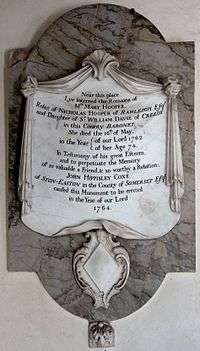 Near this place
Lye interred the Remains of
Mrs. MARY HOOPER.
Relict of NICHOLAS HOOPER of RAWLEIGH Esqr.
and Daughter of Sr. WILLIAM DAVIE of CREEDY
in this County BARONET.
She died the 10th of May,
in the Year of our Lord 1762
of her Age 74.
In Testimony of his great Esteem,
and to perpetuate the Memory
of so valuable a Friend, & so worthy a Relation;
JOHN HIPPISLEY COXE
of STON-EASTON in the County of SOMERSET Esqr.
caused this Monument to be erected
in the Year of our Lord
1764.